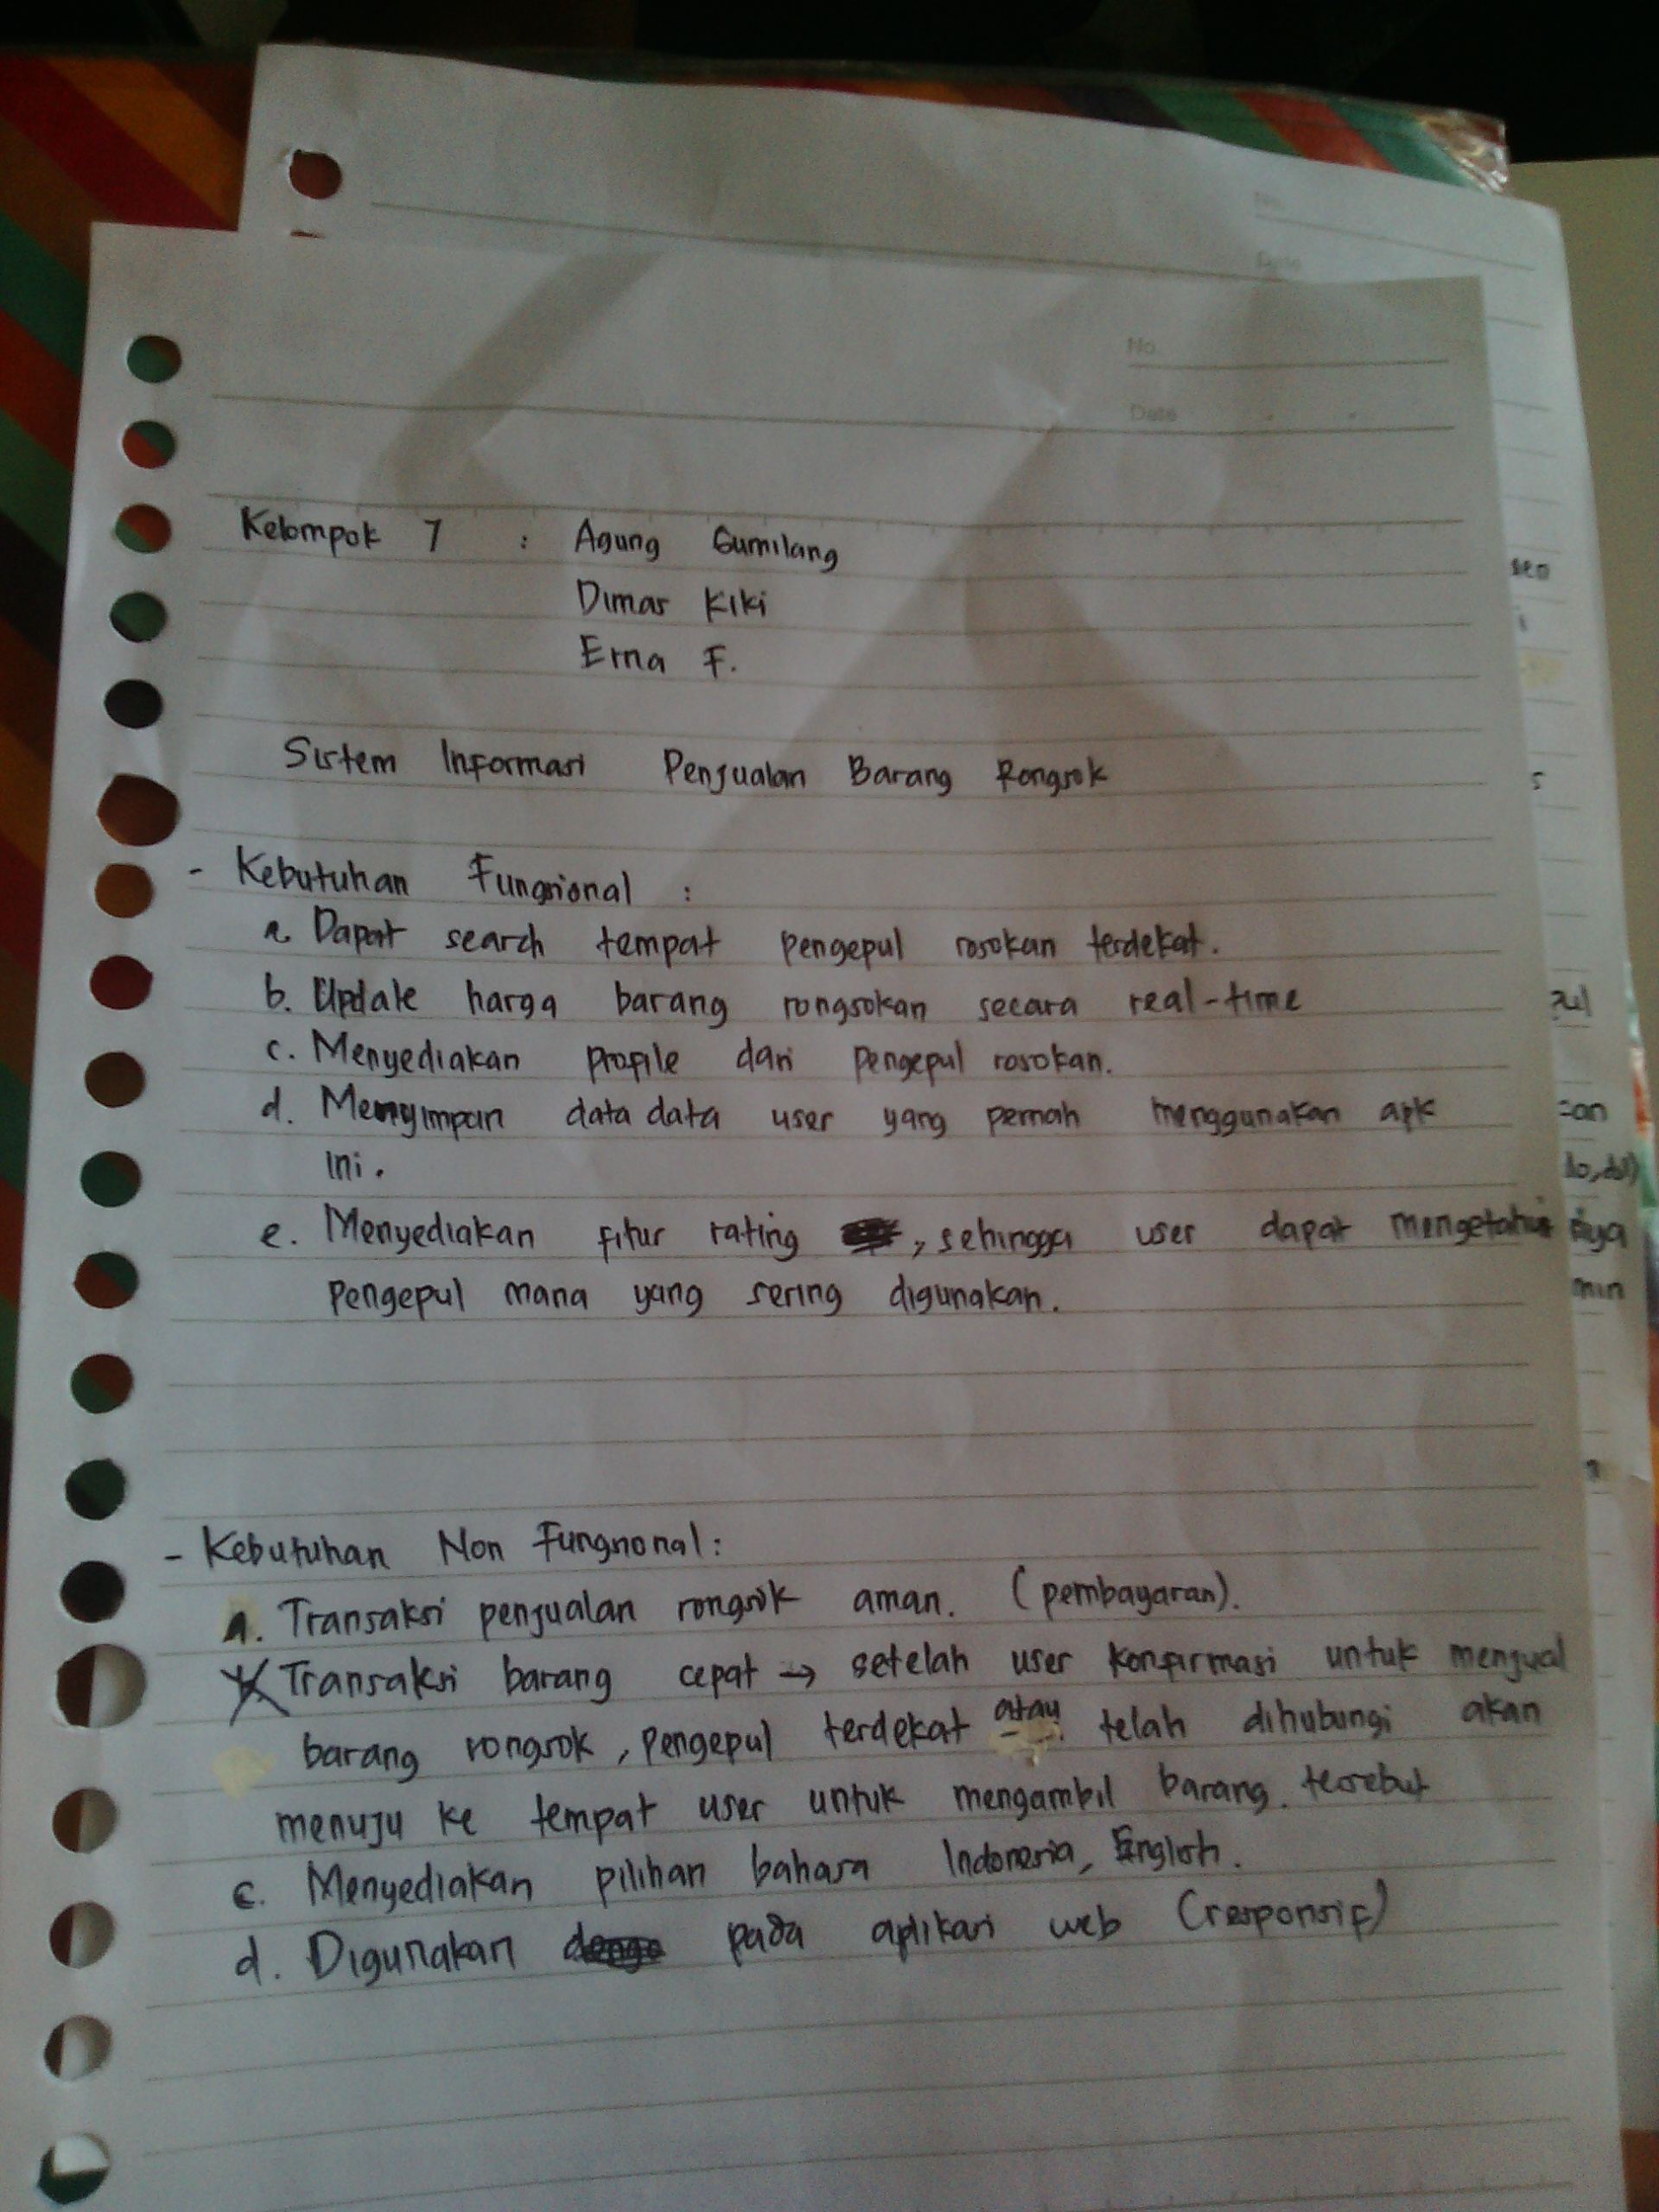 No
Date
Kelompok 7 : Agung Gumilang
Dimas Kiki
Erna F.
Sistem Informasi Penjualan Barang Rongsok
- Kebutuhan Fungsional :
a. Dapat search tempat pengepul rosokan terdekat.
b. Update harga barang rongsokan secara real-time
c. Menyediakan profile dari pengepul rosokan.
d. Menyimpan data data user yang pernah menggunakan apk
ini.
e. Menyediakan fitur rating , sehingga user dapat mengetahui
pengepul mana yang sering digunakan.
- Kebutuhan Non Fungsional :
a. Transaksi penjualan rongsok aman. (pembayaran).
Transaksi barang cepat → setelah user konfirmasi untuk menjual
barang rongsok, pengepul terdekat atau telah dihubungi akan
menuju ke tempat user untuk mengambil barang tersebut
c. Menyediakan pilihan bahasa Indonesia, English.
d. Digunakan pada aplikasi web (responsif)